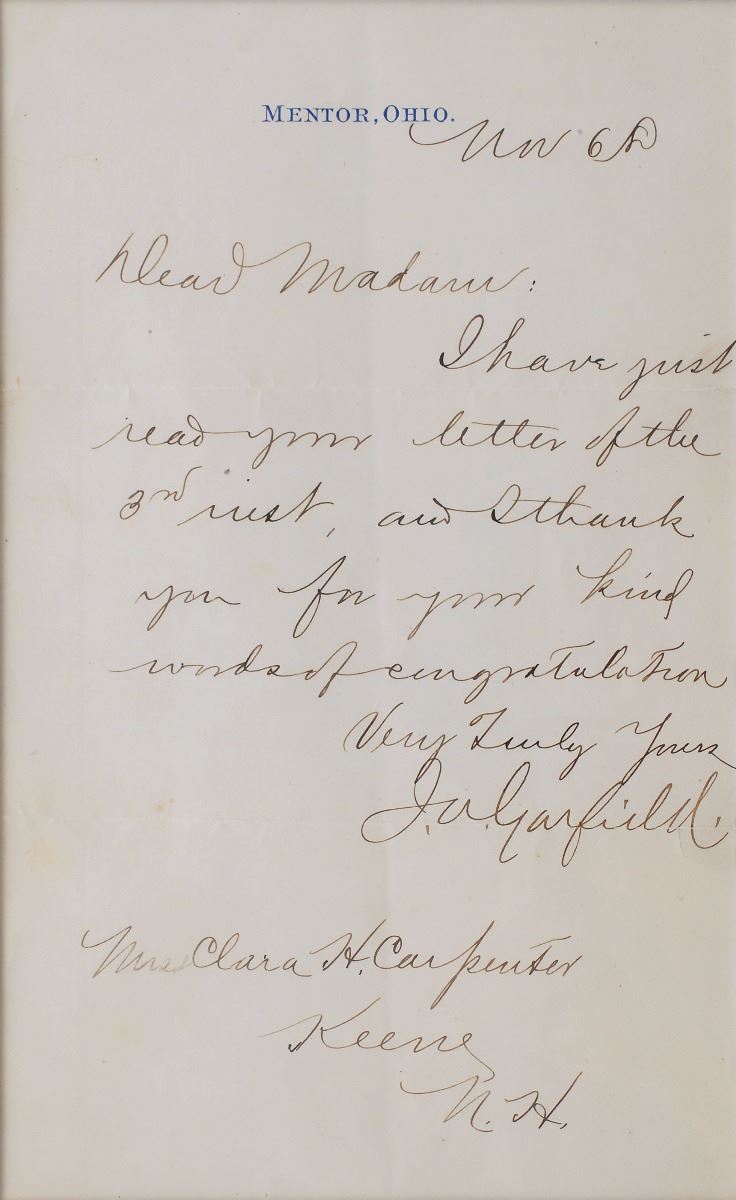 MENTOR, OHIO.
Nov 6th
Dear Madam:
I have just
read your letter of the
3rd inst, and I thank
you for your kind
words of congratulation
Very Truly Yours
J.A. Garfield.
Mrs Clara H. Carpenter
Keene
N.H.